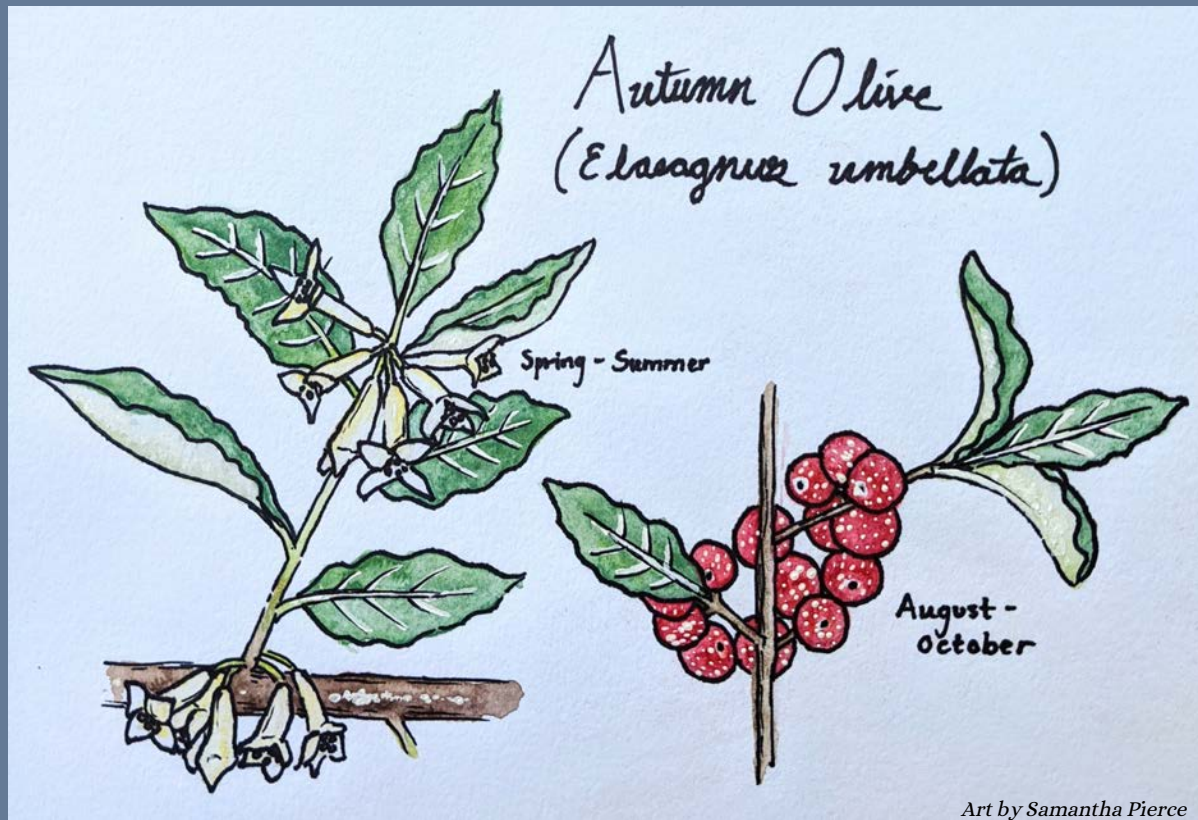 Autumn Olive
(Elaeagnus umbellata)
Spring - Summer
August -
October
Art by Samantha Pierce